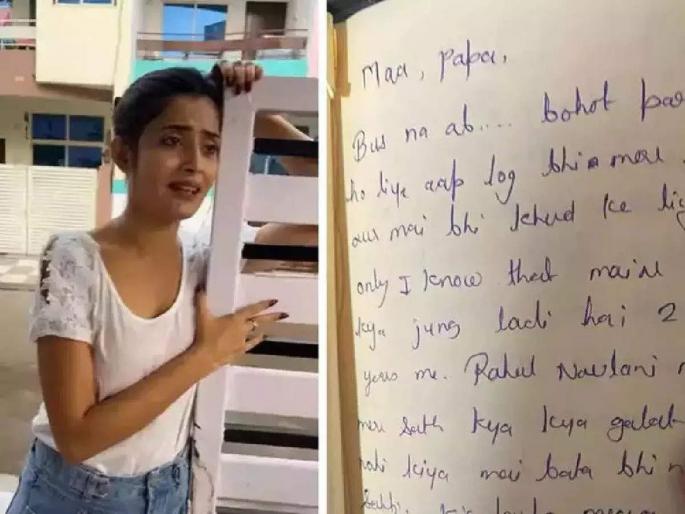 Maa, Papa,
Bus na ab.... bohot par
ho liye aap log bhi mere
aur mai bhi khud ke liy
only I know that maine
kya jung ladi hai 2
years me. Rahul Navlani n
mere sath kya kya galat
nahi kiya mai bata bhi n